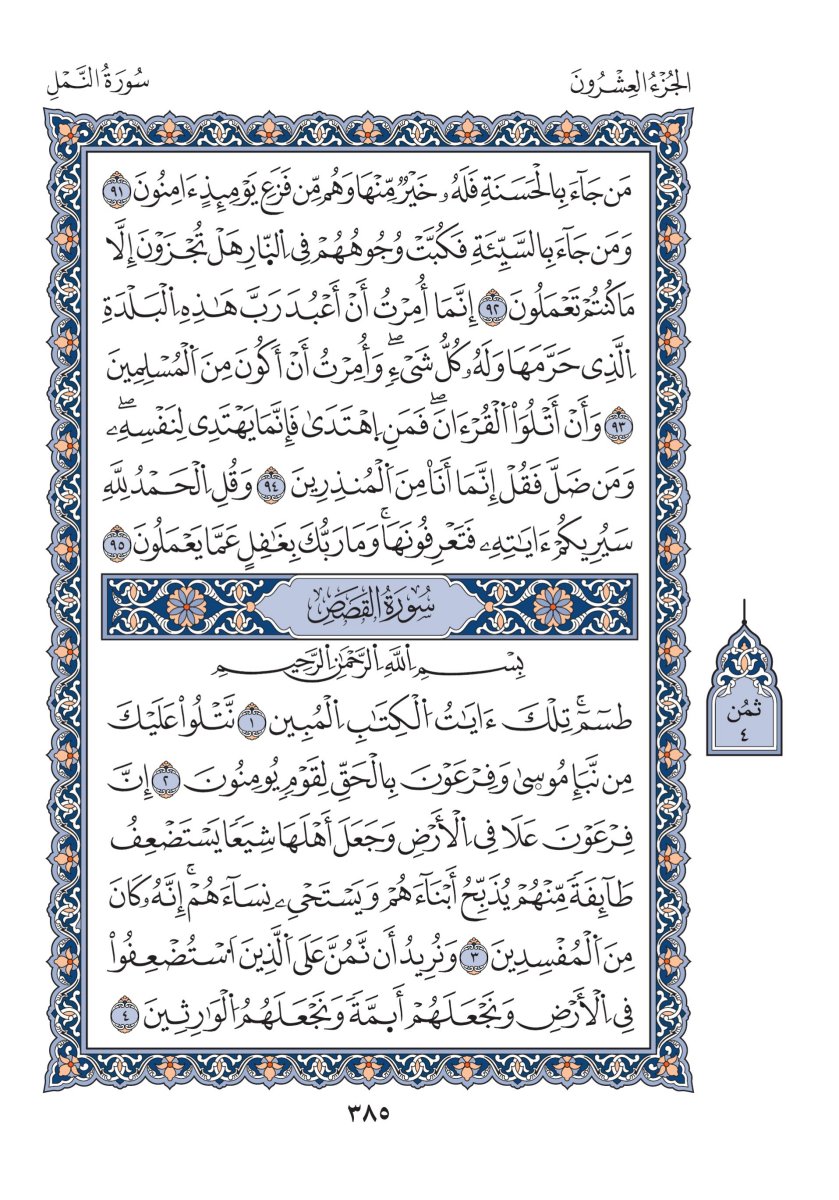 الجُزْءُ العِشْرُونَ
سُورَةُ النَّمْلِ
مَن جَآءَ بِالْحَسَنَةِ فَلَهُۥ خَيْرٌ مِّنْهَا وَهُم مِّن فَزَعِ يَوْمَئِذٍ ءَامِنُونَ ٩١
وَمَن جَآءَ بِالسَّيِّئَةِ فَكُبَّتْ وُجُوهُهُمْ فِى اِ۬لنّ۪ارِ هَلْ تُجْزَوْنَ إِلَّا
مَا كُنتُمْ تَعْمَلُونَ ٩٢ إِنَّمَا أُمِرْتُ أَنْ أَعْبُدَ رَبَّ هَٰذِهِ اِ۬لْبَلْدَةِ
اِ۬لَّذِى حَرَّمَهَا وَلَهُۥ كُلُّ شَىْءٍۖ وَأُمِرْتُ أَنْ أَكُونَ مِنَ اَ۬لْمُسْلِمِينَ
٩٣ وَأَنْ أَتْلُوَاْ اَ۬لْقُرْءَانَۖ فَمَنِ اِ۪هْتَدَىٰ فَإِنَّمَا يَهْتَدِى لِنَفْسِهِۦۖ
وَمَن ضَلَّ فَقُلْ إِنَّمَا أَنَا۠ مِنَ اَ۬لْمُنذِرِينَ ٩٤ وَقُلِ اِ۬لْحَمْدُ لِلَّهِ
سَيُرِيكُمْ ءَايَٰتِهِۦ فَتَعْرِفُونَهَاۚ وَمَا رَبُّكَ بِغَٰفِلٍ عَمَّا يَعْمَلُونَ ٩٥
سُورَةُ القَصَصِ
بِسْمِ اِ۬للَّهِ اِ۬لرَّحْمَٰنِ اِ۬لرَّحِيمِ
طسٓمٓۚ تِلْكَ ءَايَٰتُ اُ۬لْكِتَٰبِ اِ۬لْمُبِينِ ١ نَتْلُواْ عَلَيْكَ
مِن نَّبَإِ مُوس۪ىٰ وَفِرْعَوْنَ بِالْحَقِّ لِقَوْمٍ يُومِنُونَ ٢ إِنَّ
فِرْعَوْنَ عَلَا فِى اِ۬لْأَرْضِ وَجَعَلَ أَهْلَهَا شِيَعًا يَسْتَضْعِفُ
طَآئِفَةً مِّنْهُمْ يُذَبِّحُ أَبْنَآءَهُمْ وَيَسْتَحْىِۦ نِسَآءَهُمْۚ إِنَّهُۥ كَانَ
مِنَ اَ۬لْمُفْسِدِينَ ٣ وَنُرِيدُ أَن نَّمُنَّ عَلَى اَ۬لَّذِينَ اَ۟سْتُضْعِفُواْ
فِى اِ۬لْأَرْضِ وَنَجْعَلَهُمْ أَئِمَّةً وَنَجْعَلَهُمُ اُ۬لْوَٰرِثِينَ ٤
ثمُن
٤
٣٨٥